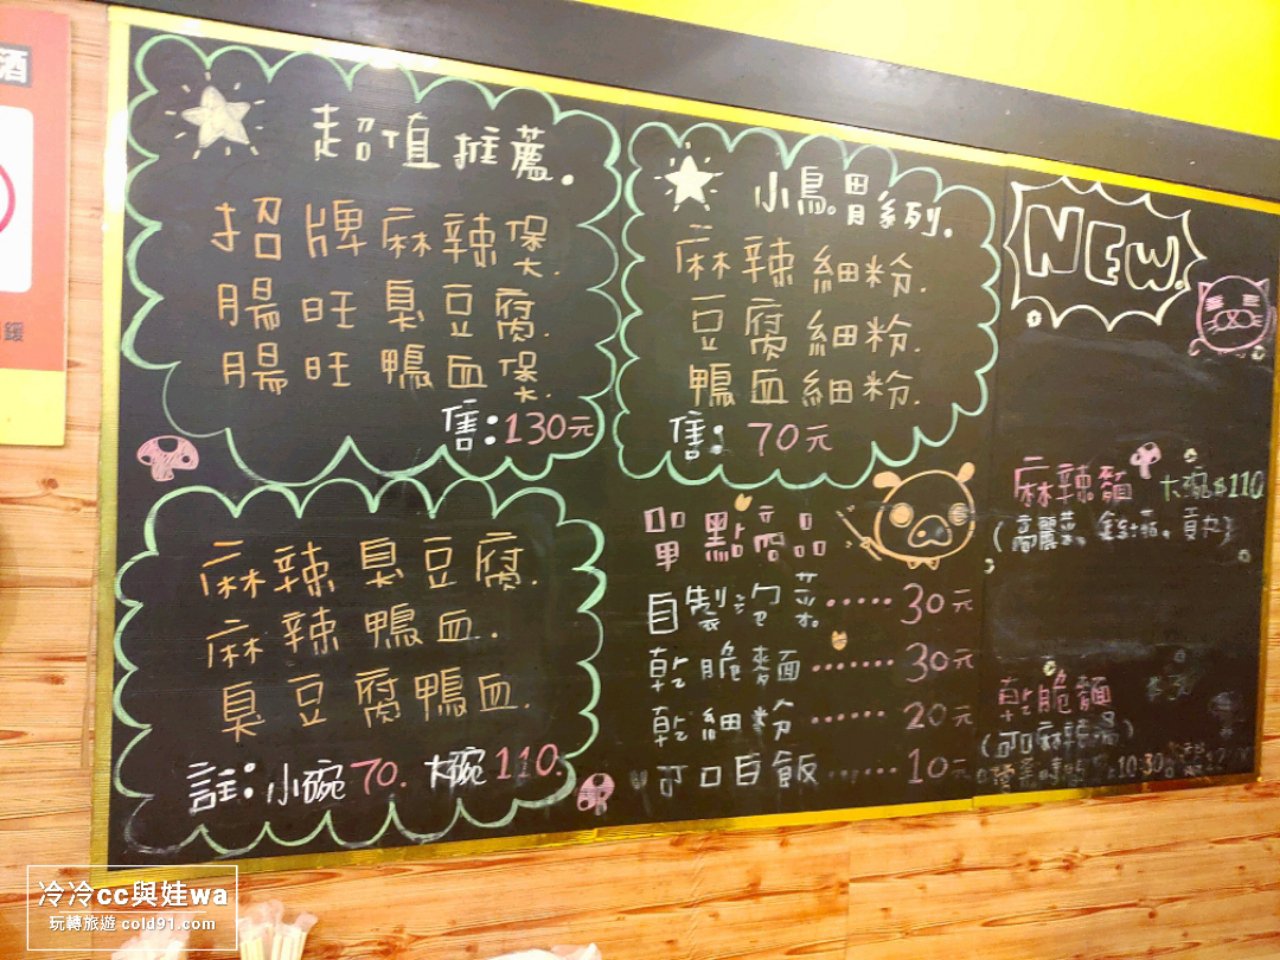 酒
超值推薦.
招牌麻辣煲.
腸旺臭豆腐.
腸旺鴨血煲.
售:130元
小鳥胃系列.
麻辣細粉.
豆腐細粉.
鴨血細粉.
售:70元
NEW.
麻辣臭豆腐.
麻辣鴨血.
臭豆腐鴨血.
註:小碗70. 大碗110.
單點商品
自製泡菜.....30元
乾脆麵.......30元
乾細粉......20元
可口白飯......10元
麻辣麵 大碗$110
乾脆麵
10:30
冷冷cc與娃wa
玩轉旅遊 cold91.com